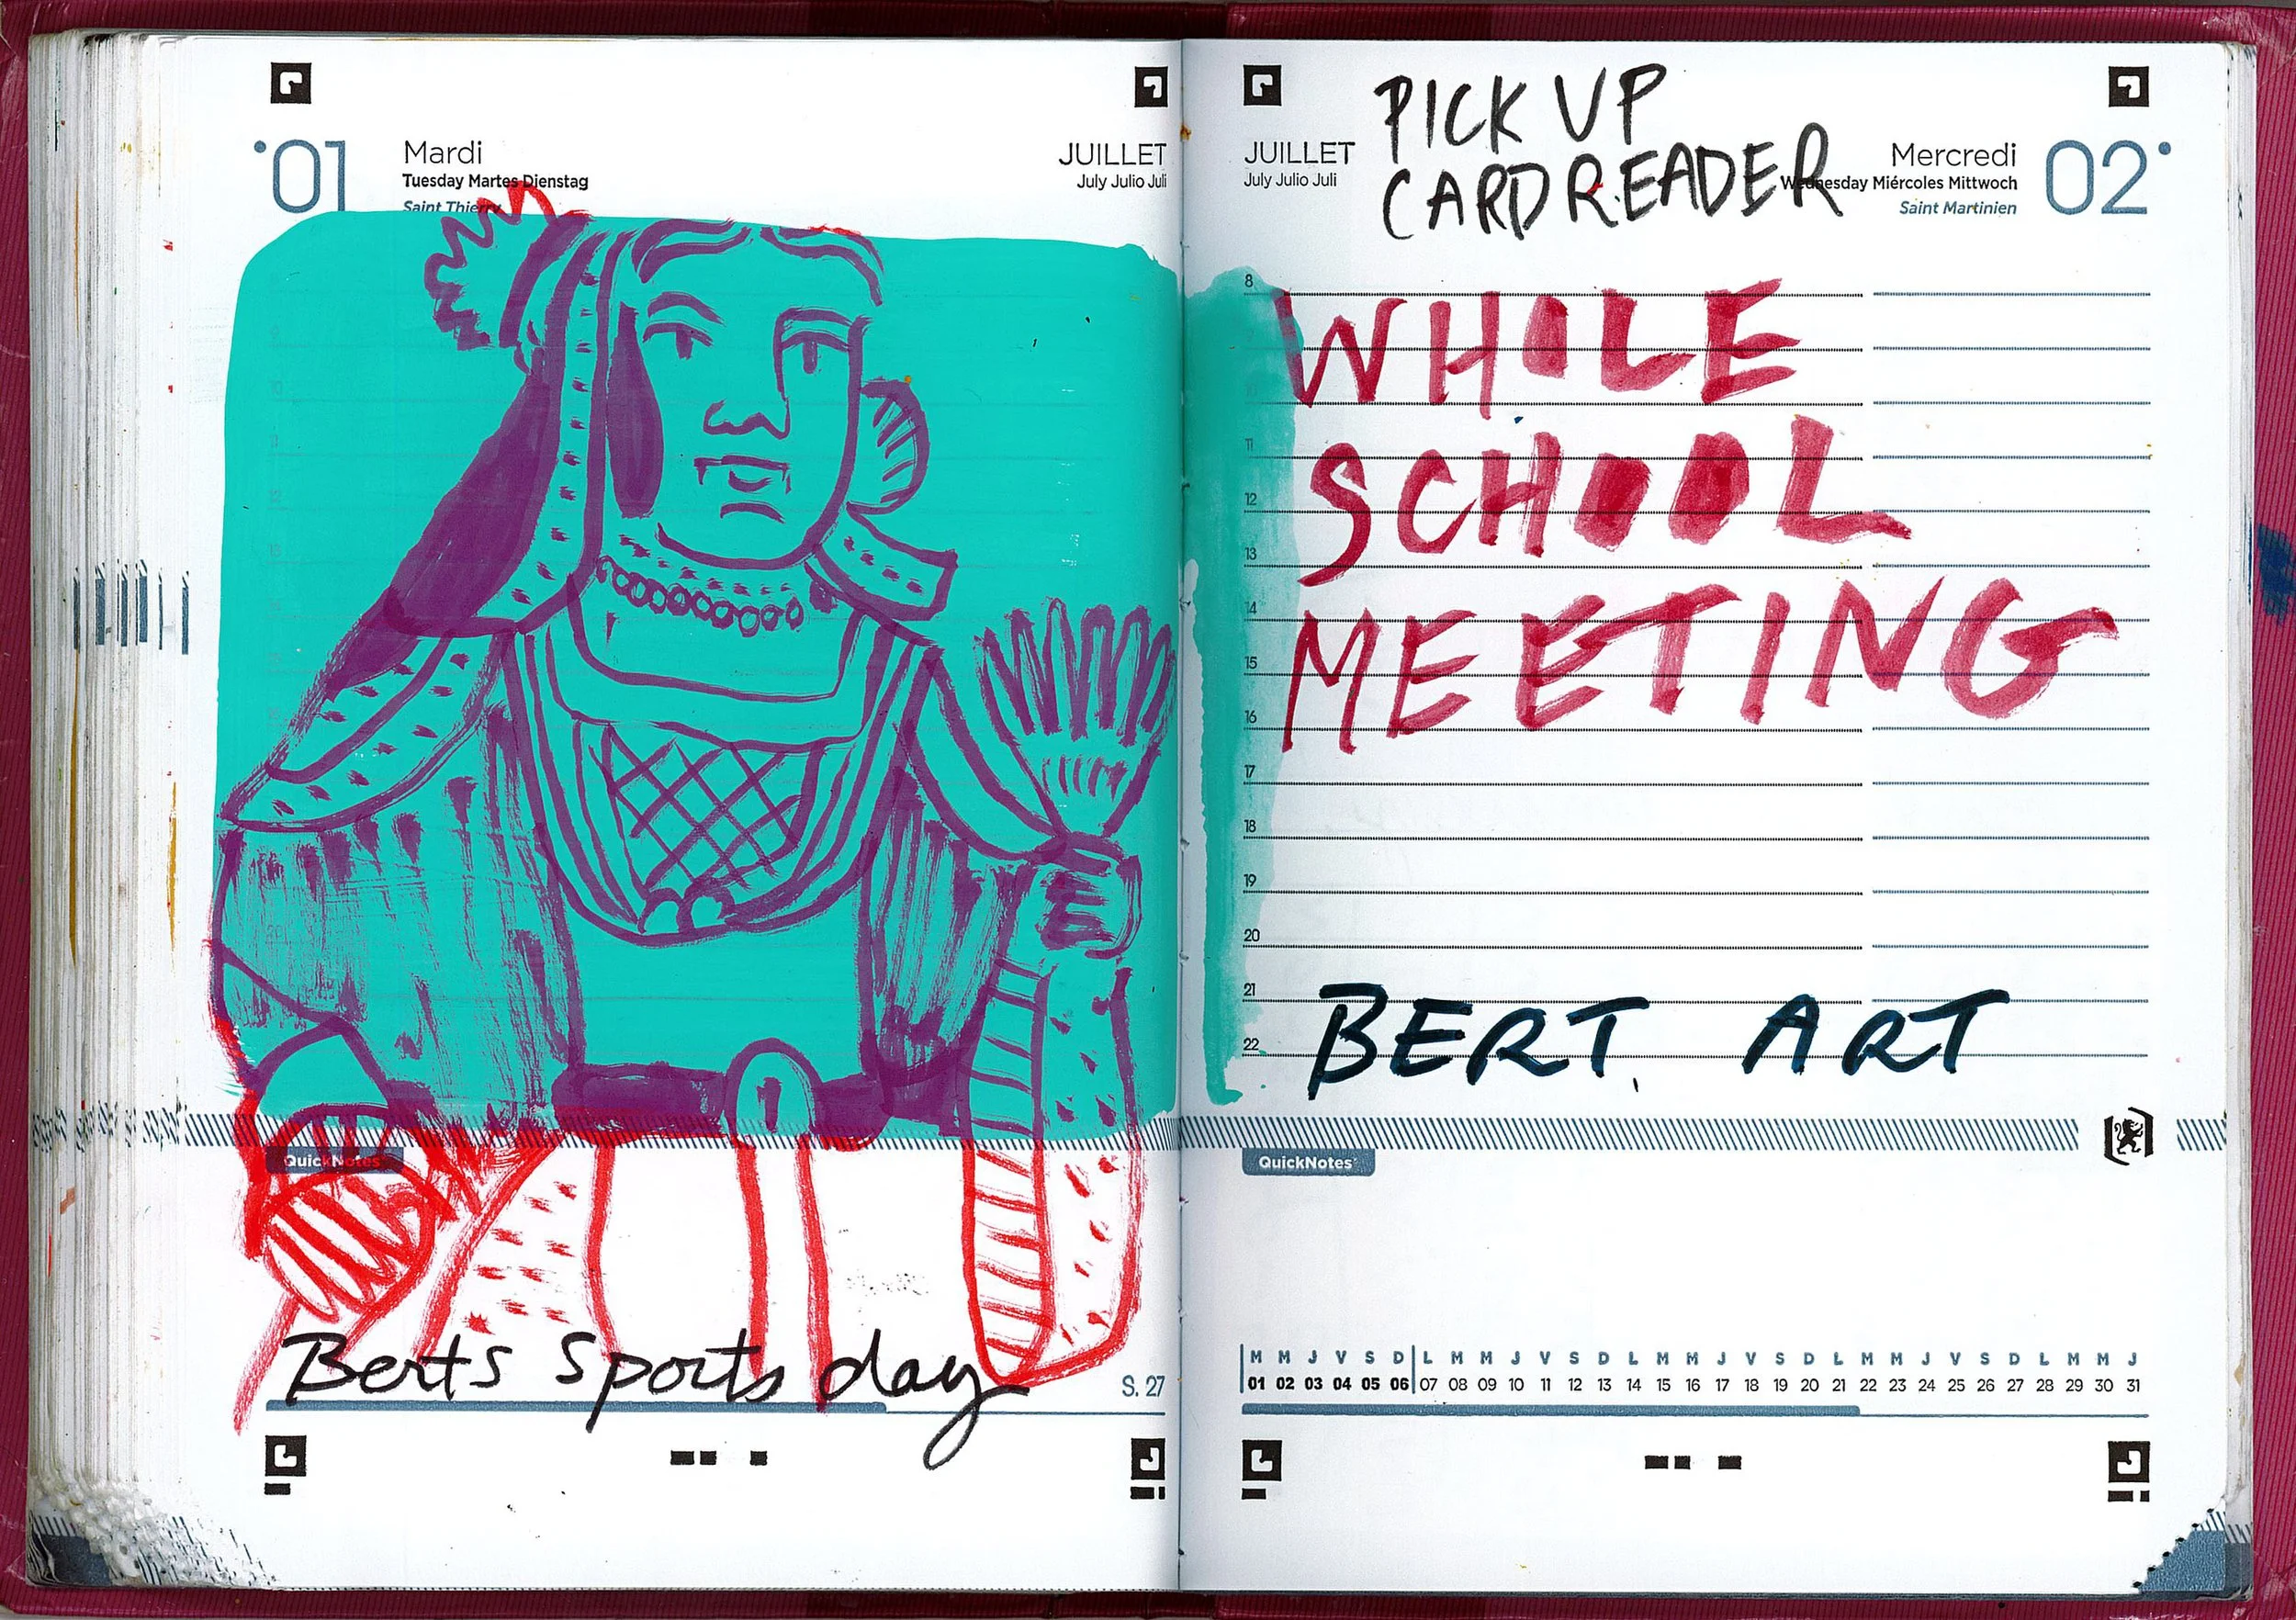 01
Mardi
Tuesday Martes Dienstag
Saint Thierry
JUILLET
July Julio Juli
QuickNotes
Berts Sports day
S. 27
PICK UP
CARD READER
JUILLET
July Julio Juli
Mercredi
Wednesday Miércoles Mittwoch
Saint Martinien
02
8
WHOLE
11
SCHOOL
12
13
14
MEETING
15
16
17
18
19
20
21
BERT. ART
22
QuickNotes
M M J V S D L M M J V S D L M M J V S D L M M J V S D L M M J
01 02 03 04 05 06 07 08 09 10 11 12 13 14 15 16 17 18 19 20 21 22 23 24 25 26 27 28 29 30 31